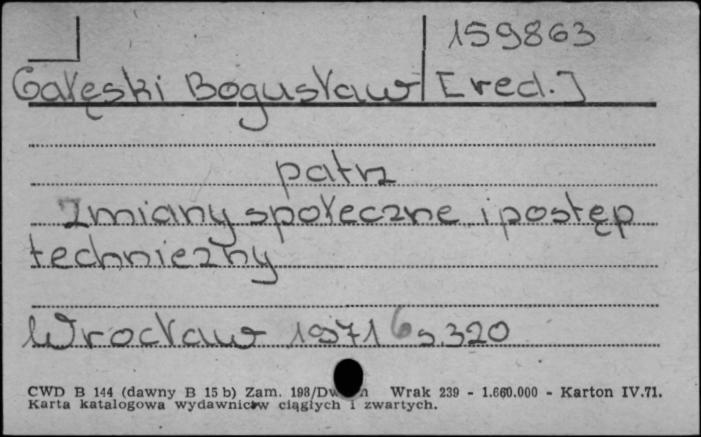 159863
Gałęski Bogusław [red.]
patrz
Zmiany społeczne i postęp
techniczny
Wrocław 1971 6 s. 320
CWD B 144 (dawny B 15 b) Zam. 198/Dw Wrak 239 - 1.660.000 - Karton IV.71.
Karta katalogowa wydawnictw ciągłych i zwartych.